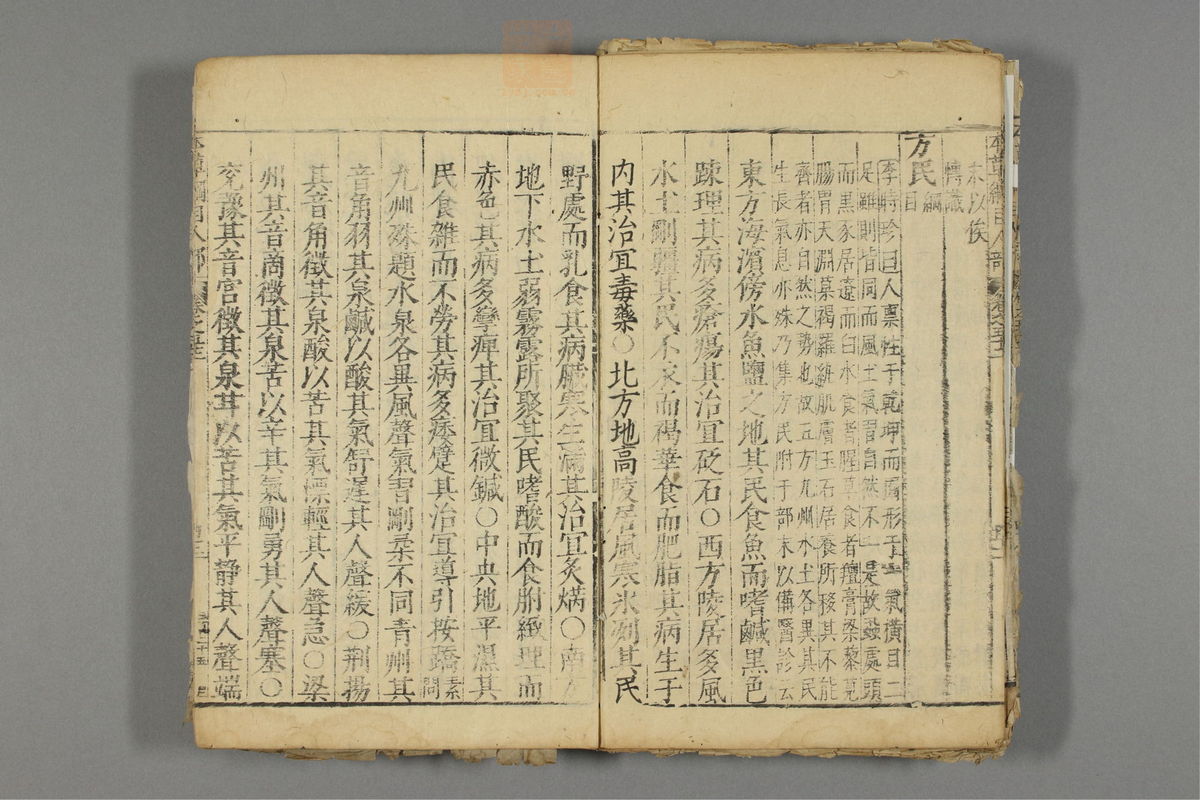 本草綱目人部
末以俟
博識
方民綱目
李時珍曰人禀性于乾坤而囿形于一氣横目二
足雖則皆同而風土氣習自然不一是故蝨處頭
而黒豕居遼而白水食者腥草食者羶膏粱藜莧
腸胃天淵菉褐羅紈肌膚玉石居養所移其不能
齊者亦自然之勢也故五方九州水土各異其民
生長氣息亦殊乃集方民附于部末以備醫診云
東方海濱傍水魚鹽之地其民食魚而嗜鹹黒色
踈理其病多瘡瘍其治宜砭石〇西方陵居多風
水土剛疆其民不衣而褐華食而肥脂其病生于
内其治宜毒藥〇北方地高陵居風寒氷冽其民
野處而乳食其病臟寒生滿其治宜灸焫〇南方
地下水土弱霧露所聚其民嗜酸而食胕緻理而
赤色其病多攣痺其治宜微鍼〇中央地平濕其
民食雜而不勞其病多痿躄其治宜導引按蹻素問
九州殊題水泉各異風聲氣習剛柔不同青州其
音角羽其泉鹹以酸其氣舒遲其人聲緩〇荆揚
其音角徵其泉酸以苦其氣慓輕其人聲急〇梁
州其音商徵其泉苦以辛其氣剛勇其人聲塞〇
兖豫其音宮徵其泉甘以苦其氣平静其人聲端
本草綱目人部